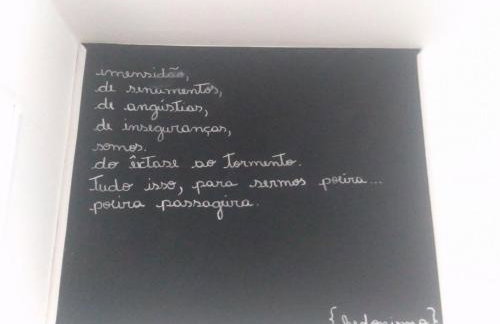 imensidão,
de sentimentos,
de angústias,
de inseguranças,
somos.
do êxtase ao tormento.
Tudo isso, para sermos poeira...
poeira passageira.